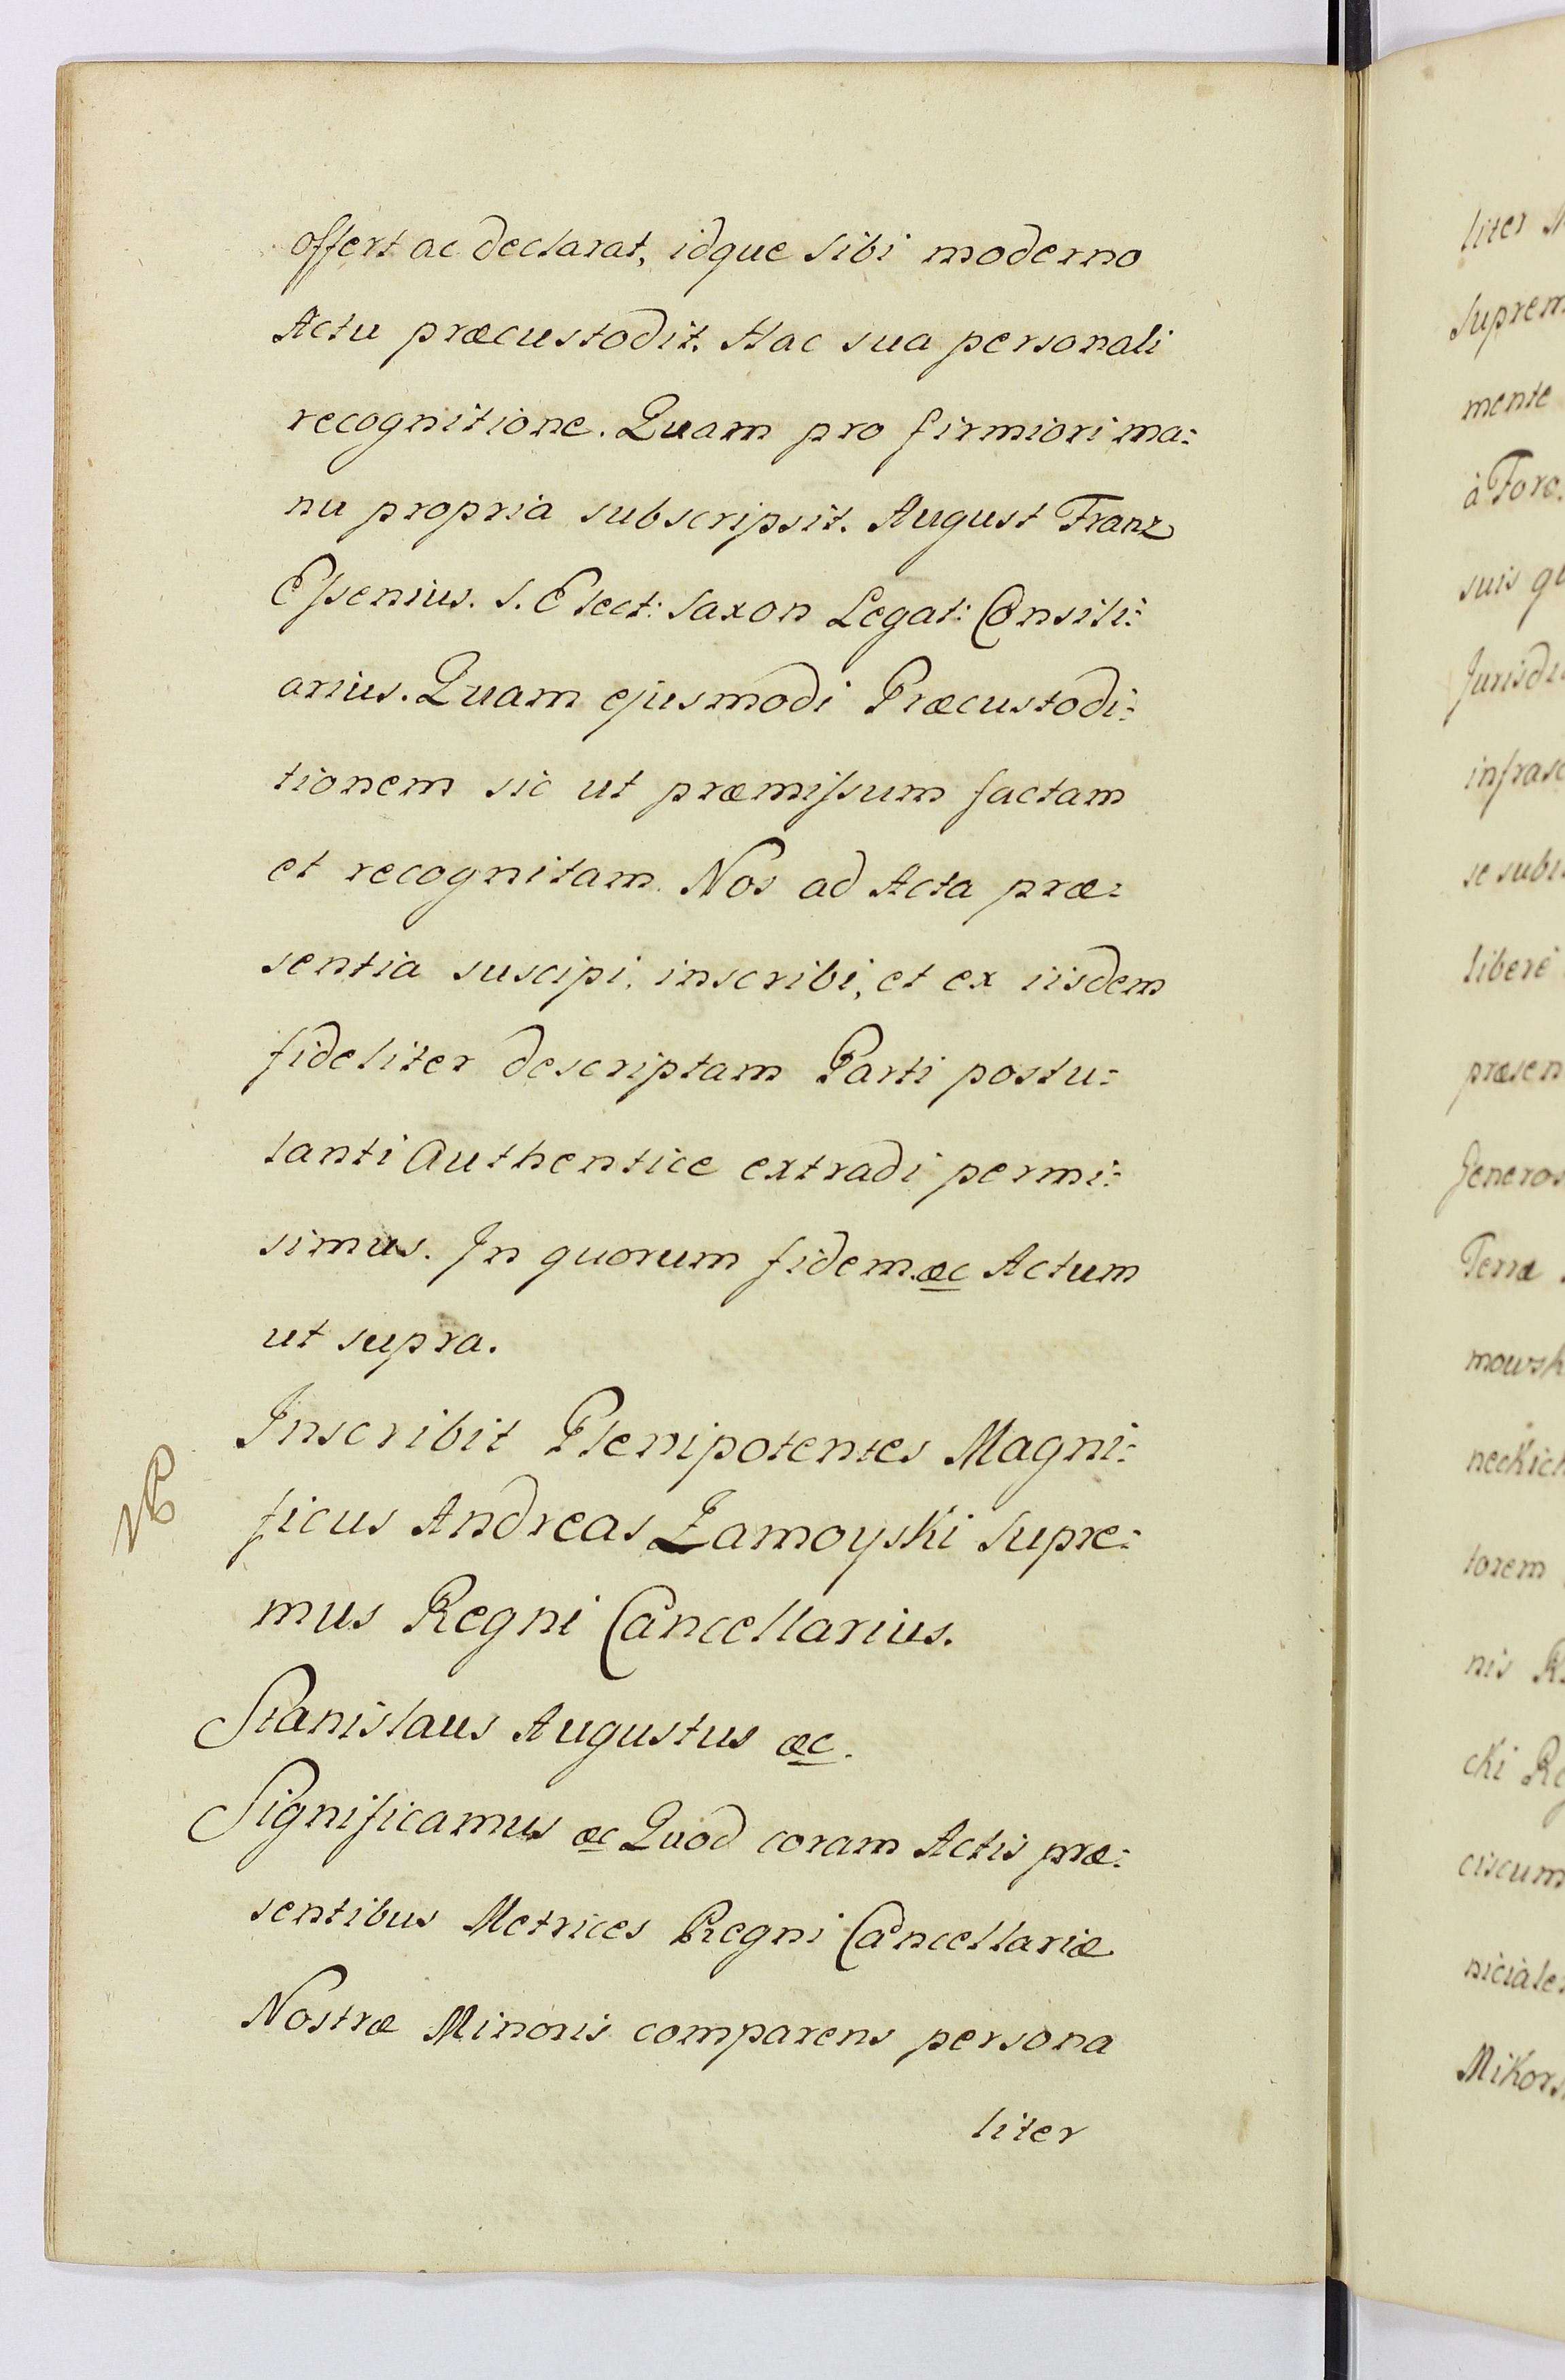 offert ac declarat, idque sibi moderno
Actu præcustodit. Hac sua personali
recognitione. Quam pro firmiori ma:
nu propria subscripsit. August Franz
Eſsenius. S. Elect: Saxon Legat: Consili:
arius. Quam ejusmodi Præcustodi:
tionem sic ut præmiſsum factam
et recognitam. Nos ad Acta præ:
sentia suscipi, inscribi, et ex iisdem
fideliter descriptam Parti postu:
lanti Authentice extradi permi:
simus. In quorum fidem. &c Actum
ut supra.
Inscribit Plenipotentes Magni:
ficus Andreas Zamoyski Supre:
mus Regni Cancellarius.
Stanislaus Augustus &c.
Significamus &c Quod coram Actis præ:
sentibus Metrices Regni Cancellariæ
Nostræ Minoris comparens persona
liter
liter
Suprem
mente
à Fore
suis
Jurisdi
infrasc
se subi
liberè
præsen
Generos
Terræ
mowsk
neckich
lorem
nis
cki
ciscum
niciale
Mikors